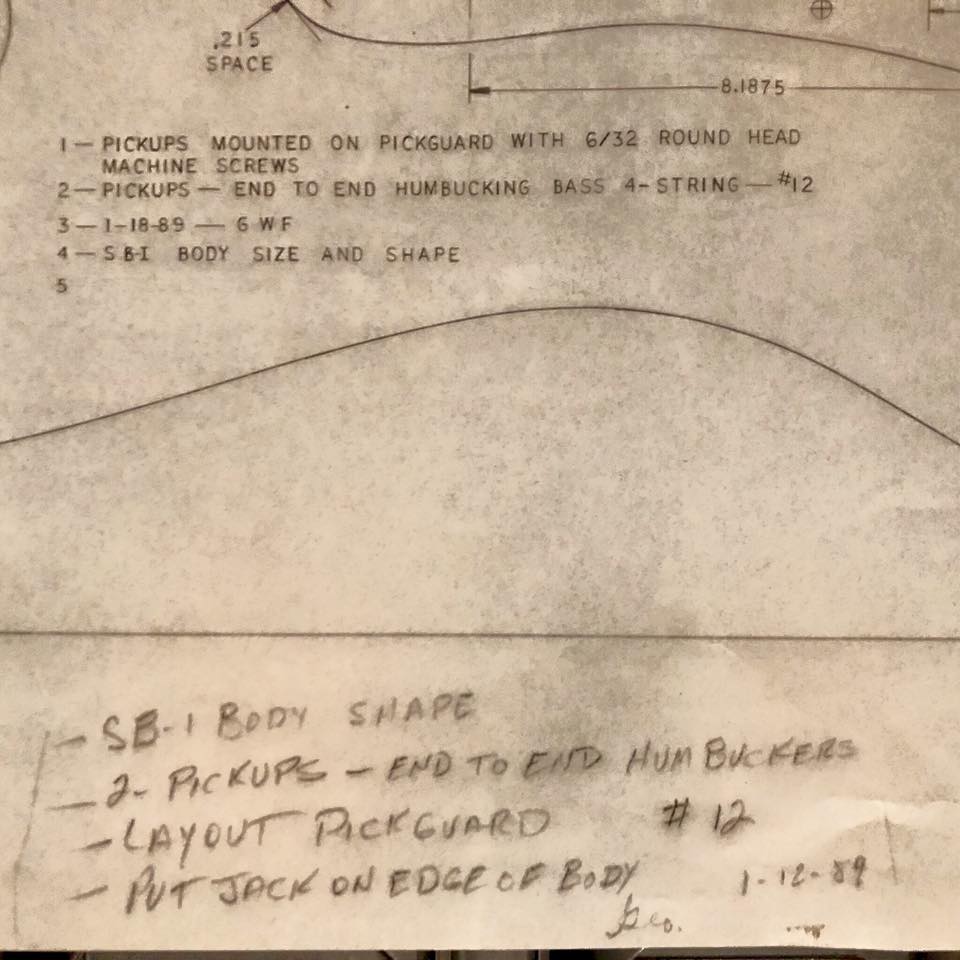 .215
SPACE
8.1875
1 — PICKUPS MOUNTED ON PICKGUARD WITH 6/32 ROUND HEAD
MACHINE SCREWS
2 — PICKUPS — END TO END HUMBUCKING BASS 4-STRING — #12
3 — 1-18-89 — G W F
4 — SB-1 BODY SIZE AND SHAPE
5
— SB-1 BODY SHAPE
— 2- PICKUPS — END TO END HUMBUCKERS
— LAYOUT PICKGUARD # 12
— PUT JACK ON EDGE OF BODY 1-12-89
Geo.